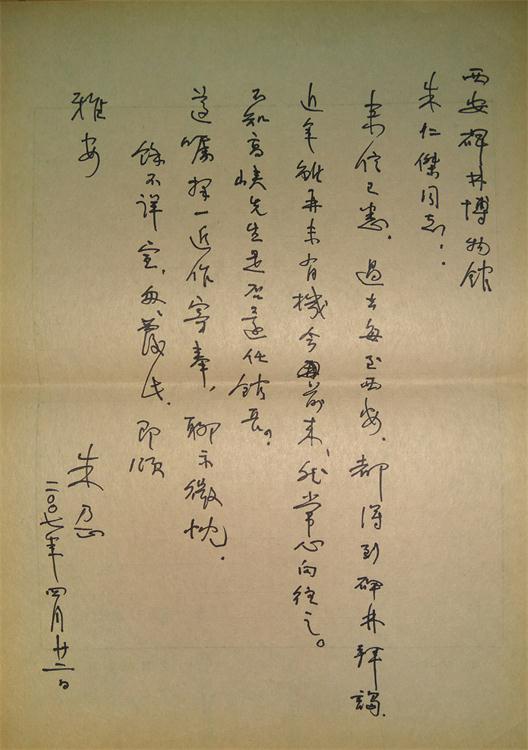 西安碑林博物館
朱仁傑同志：
来信已悉。過去每至西安，都得到碑林拜謁。
近年雖再未有機会再前来，然常心向往之。
不知高峽先生是否還任館長。
遵嘱择一近作寄奉，聊示微忱。
餘不詳宣，即頌
雅安
朱乃正
二〇〇七年四月廿二日